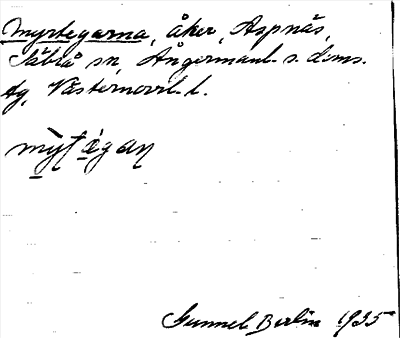 Myrtegarna, åker, Aspnäs,
Säbrå sn, Ångermanl. s. doms.
tg, Västernorrl. l.
Gunnel Berlin 1935